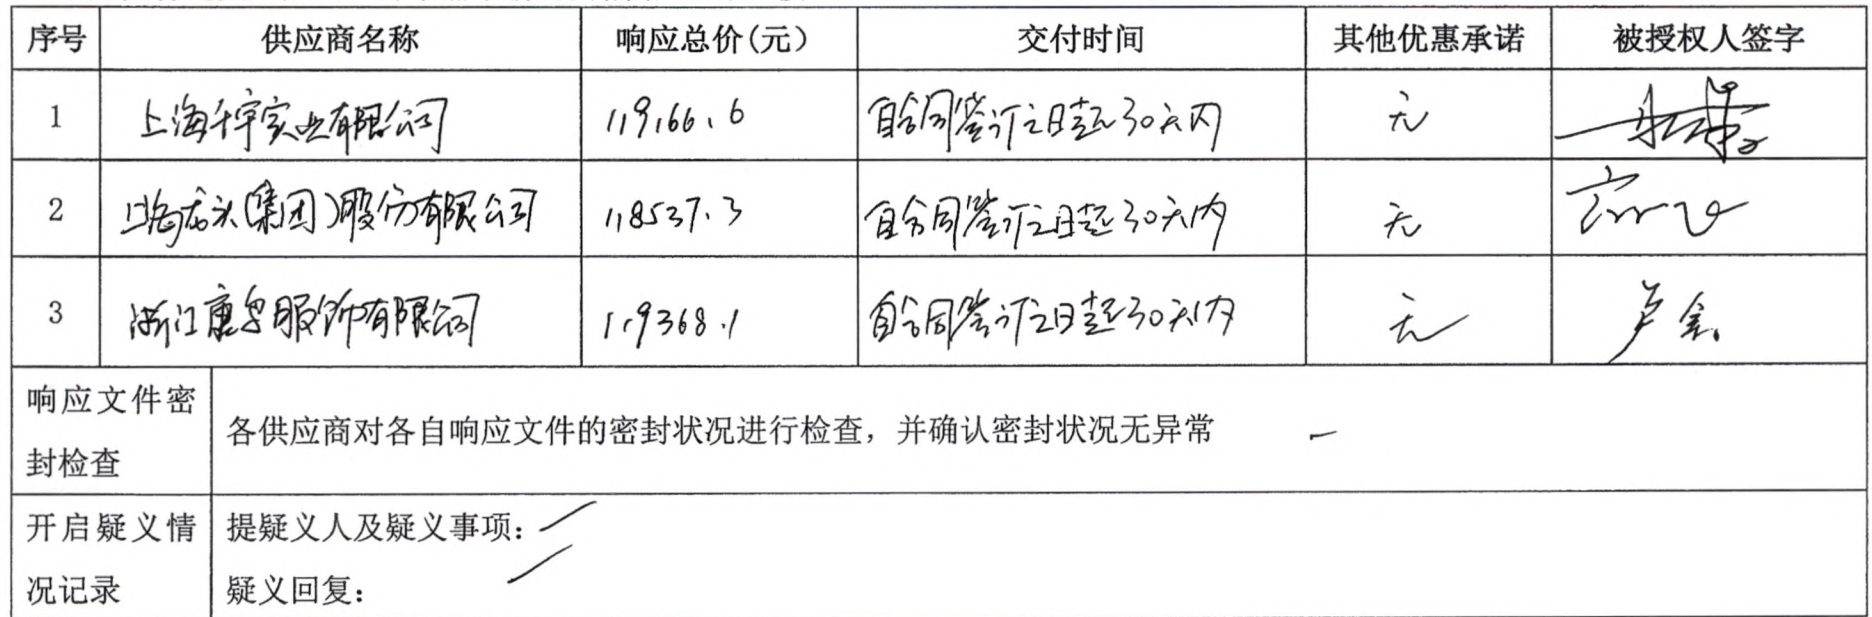 序号 供应商名称 响应总价(元) 交付时间 其他优惠承诺 被授权人签字
1 上海千宇实业有限公司 119166.6 自合同签订之日起30天内 无
2 上海龙头(集团)股份有限公司 118537.3 自合同签订之日起30天内 无
3 浙江唐氏服饰有限公司 119368.1 自合同签订之日起30天内 无 卢鑫
响应文件密
封检查
各供应商对各自响应文件的密封状况进行检查，并确认密封状况无异常
开启疑义情 提疑义人及疑义事项：
况记录 疑义回复：